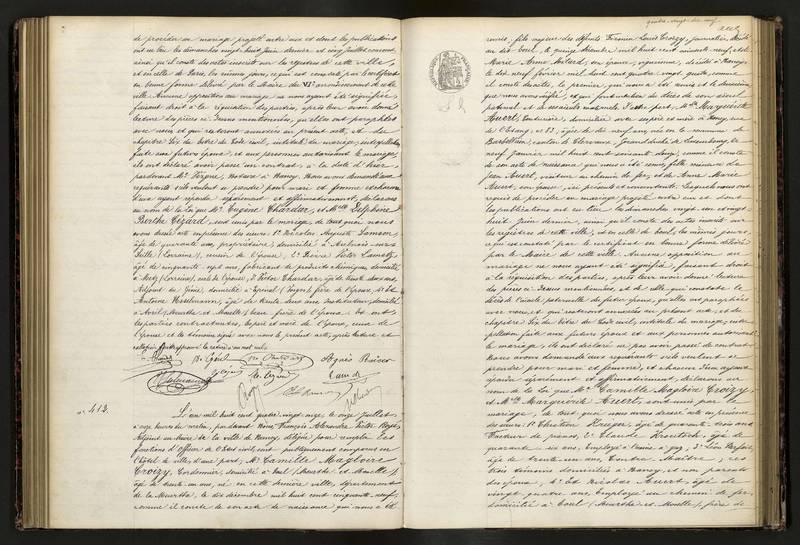 de procéder au mariage projeté entre eux et dont les publications
ont eu lieu les dimanches vingt-huit juin dernier et cinq juillet courant,
ainsi qu'il conste des actes inscrits sur les registres de cette ville,
et en celle de Paris, les mêmes jours, ce qui est constaté par le certificat
en bonne forme délivré par le Maire du VIe arrondissement de cette
ville. Aucune opposition au mariage ne nous ayant été signifiée,
faisant droit à la réquisition des parties, après leur avoir donné
lecture des pièces ci-dessus mentionnées, qu'elles ont paraphées
avec nous et qui resteront annexées au présent acte, et du
chapitre six du titre du Code civil, intitulé du mariage, interpellation
faite aux futurs époux, et aux personnes autorisant le mariage,
ils ont déclaré avoir passé un contrat, à la date d'hier
pardevant Me Vergne, Notaire à Nancy. Nous avons demandé aux
requérants s'ils veulent se prendre pour mari et femme et chacun
d'eux ayant répondu séparément et affirmativement, déclarons
au nom de la Loi que Mr Eugène Chardar, et Mlle Delphine
Berthe Cézard, sont unis par le mariage, de tout quoi nous
avons dressé acte en présence des sieurs 1° Nicolas Auguste
âgé de quarante ans, propriétaire, domicilié à Aulnois-sur-
Seille (Lorraine), cousin de l'épouse, 2° Pierre Victor
âgé de cinquante sept ans, fabricant de produits chimiques, domicilié
à Metz (Lorraine), 3° Victor Chardar, âgé de trente deux ans
Adjoint du Génie, domicilié à Epinal (Vosges), frère de l'époux, 4°
Antoine, âgé de trente deux ans, Instituteur, domicilié
à Avril (Meurthe et Moselle), beau frère de l'époux. Et ont
les parties contractantes, les père et mère de l'époux,
l'épouse et les témoins, signé avec nous le présent acte, après lecture
N° 413.
L'an mil huit cent quatre vingt onze, le onze Juillet
à onze heures du matin, par devant Nous, François Alexandre Victor
Adjoint au Maire de la ville de Nancy, délégué pour remplir les
fonctions d'officier de l'état civil, ont publiquement comparu en
l'hôtel de ville, d'une part, Mr Camille Magloire
Croizy, Cordonnier, domicilié à Toul (Meurthe et Moselle),
âgé de trente-un ans, né en cette dernière ville, département
de la Meurthe, le dix décembre mil huit cent cinquante neuf,
comme il conste de son acte de naissance qui nous a été
quatre-vingt-dix-neuf
remis, fils majeur des défunts Firmin Louis Croizy, journalier, décédé
au dit Toul, le quinze décembre mil huit cent soixante neuf, et de
Marie Anne, son épouse, vigneronne, décédée à Nancy,
le dix neuf février mil huit cent quatre vingt quatre, comme
il conste des actes, le premier, qui nous a été remis et le deuxième
que nous avons vérifié; ayant justifié des décès de son aïeul
paternel et de ses aïeuls maternels. D'autre part, Mlle Marguerite
Avert, Couturière, domiciliée avec ses père et mère à Nancy, rue
de l'Etang, n° 83, âgée de dix neuf ans, née en la commune de
canton de Clervaux, Grand duché de Luxembourg, le
neuf janvier mil huit cent soixante douze, comme il conste
de son acte de naissance qui nous a été remis, fille mineure de
Jean Avert, visiteur au chemin de fer, et de Anne Marie
Avert, son épouse, ici présents et consentants. Lesquels nous ont
requis de procéder au mariage projeté entre eux et dont
les publications ont eu lieu les dimanches vingt-un et vingt
huit Juin dernier, ainsi qu'il conste des actes inscrits sur
les registres de cette ville, et en celle de Toul, les mêmes jours,
ce qui est constaté par le certificat en bonne forme délivré
par le Maire de cette ville. Aucune opposition au
mariage ne nous ayant été signifiée, faisant droit
à la réquisition des parties, après leur avoir donné lecture
des pièces ci-dessus mentionnées, et de celle qui constate le
décès de l'aïeule paternelle du futur époux, qu'elles ont paraphées
avec nous, et qui resteront annexées au présent acte, et du
chapitre six du titre du Code civil, intitulé du mariage, inter-
pellation faite aux futurs époux et aux personnes autorisant
le mariage, ils ont déclaré ne pas avoir passé de contrat.
Nous avons demandé aux requérants s'ils veulent se
prendre pour mari et femme, et chacun d'eux ayant
répondu séparément et affirmativement, déclarons au
nom de la Loi que Mr Camille Magloire Croizy,
et Mlle Marguerite Avert, sont unis par le
mariage, de tout quoi nous avons dressé acte en présence
des sieurs 1° Chrétien Krueger, âgé de quarante trois ans
Facteur de pianos, 2° Claude, âgé de
quarante six ans, Employé à l'usine à gaz, 3° Léon Parfait,
âgé de trente un ans, Contre-Maître, ces
trois témoins domiciliés à Nancy, et non parents
des époux, 4° et Nicolas Avert, âgé de
vingt quatre ans, Employé au chemin de fer,
domicilié à Toul (Meurthe et Moselle), frère de